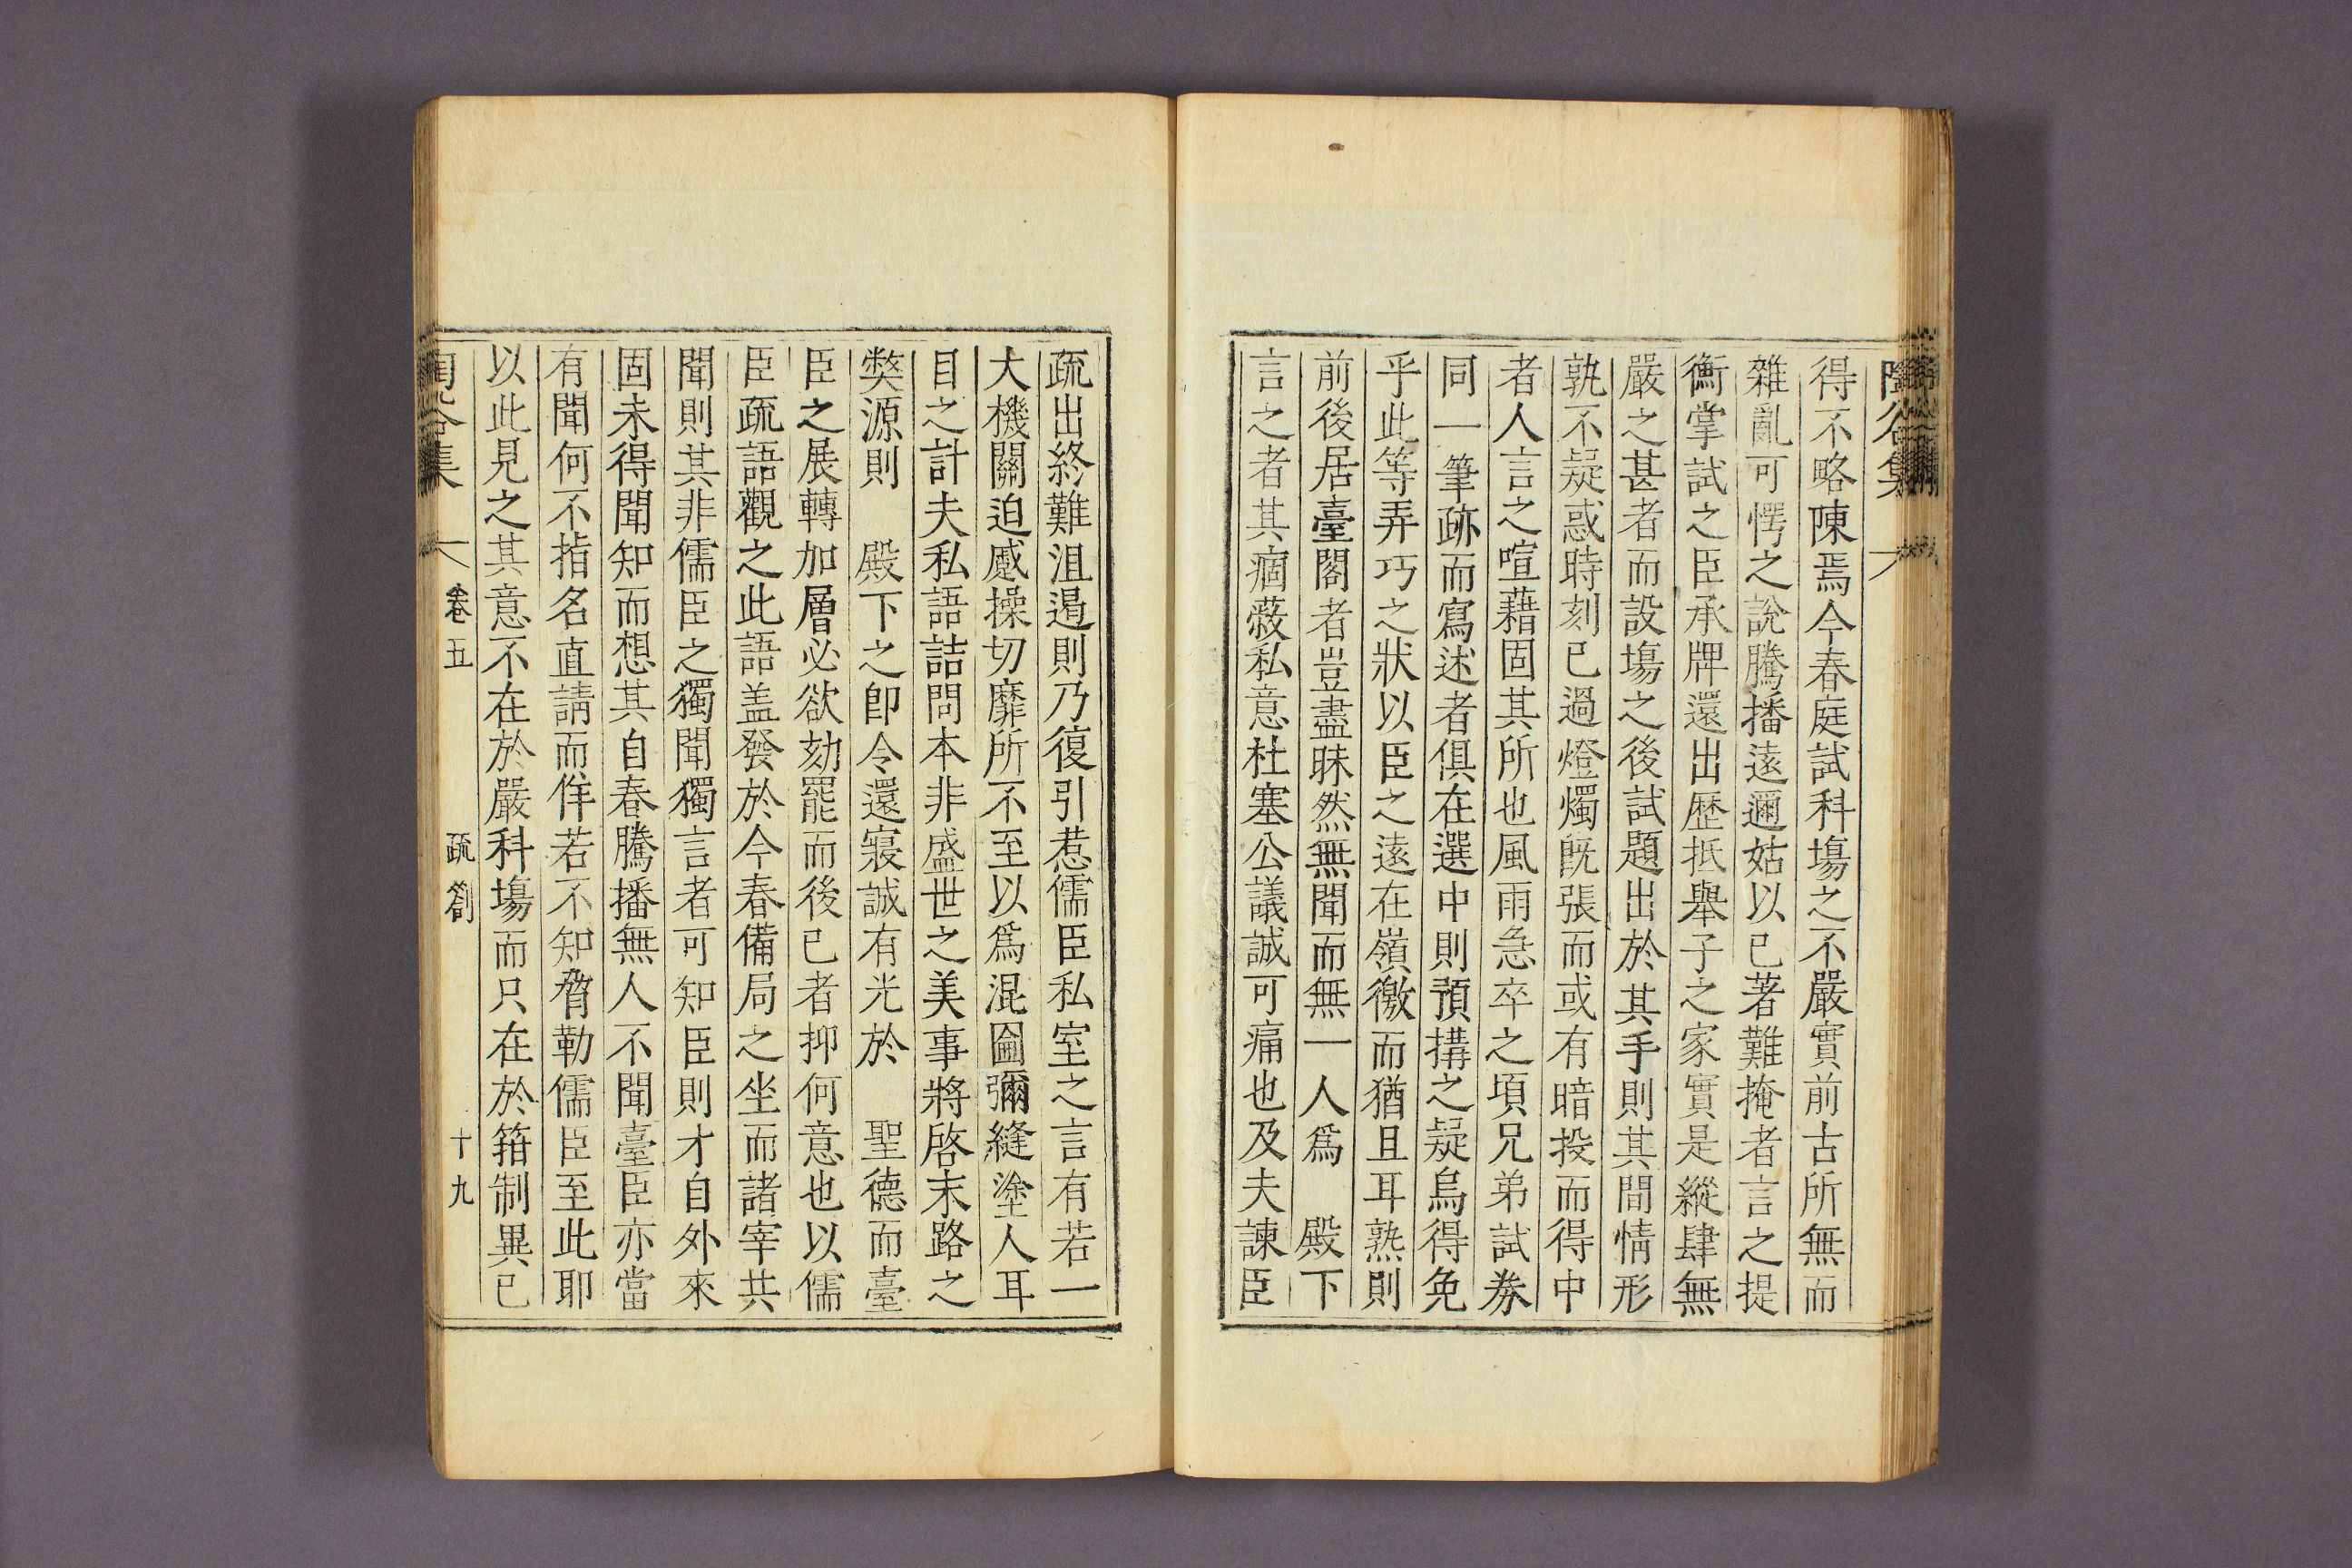 陶谷集
得不略陳焉今春庭試科塲之不嚴實前古所無而
雜亂可愕之說騰播遠邇姑以已著難掩者言之提
衡掌試之臣承牌還出歷抵舉子之家實是縱肆無
嚴之甚者而設塲之後試題出於其手則其間情形
孰不疑惑時刻已過燈燭旣張而或有暗投而得中
者人言之喧藉固其所也風雨急卒之頃兄弟試券
同一筆跡而寫述者俱在選中則預搆之疑烏得免
乎此等弄巧之狀以臣之遠在嶺徼而猶且耳熟則
前後居臺閣者豈盡昧然無聞而無一人爲 殿下
言之者其痼蔽私意杜塞公議誠可痛也及夫諫臣
疏出終難沮遏則乃復引惹儒臣私室之言有若一
大機關迫蹙操切靡所不至以爲混圇彌縫塗人耳
目之計夫私語詰問本非盛世之美事將啓末路之
獘源則 殿下之卽令還寢誠有光於 聖德而臺
臣之展轉加層必欲劾罷而後已者抑何意也以儒
臣疏語觀之此語盖發於今春備局之坐而諸宰共
聞則其非儒臣之獨聞獨言者可知臣則才自外來
固未得聞知而想其自春騰播無人不聞臺臣亦當
有聞何不指名直請而佯若不知脅勒儒臣至此耶
以此見之其意不在於嚴科塲而只在於箝制異己
陶谷集 卷五 疏劄 十九